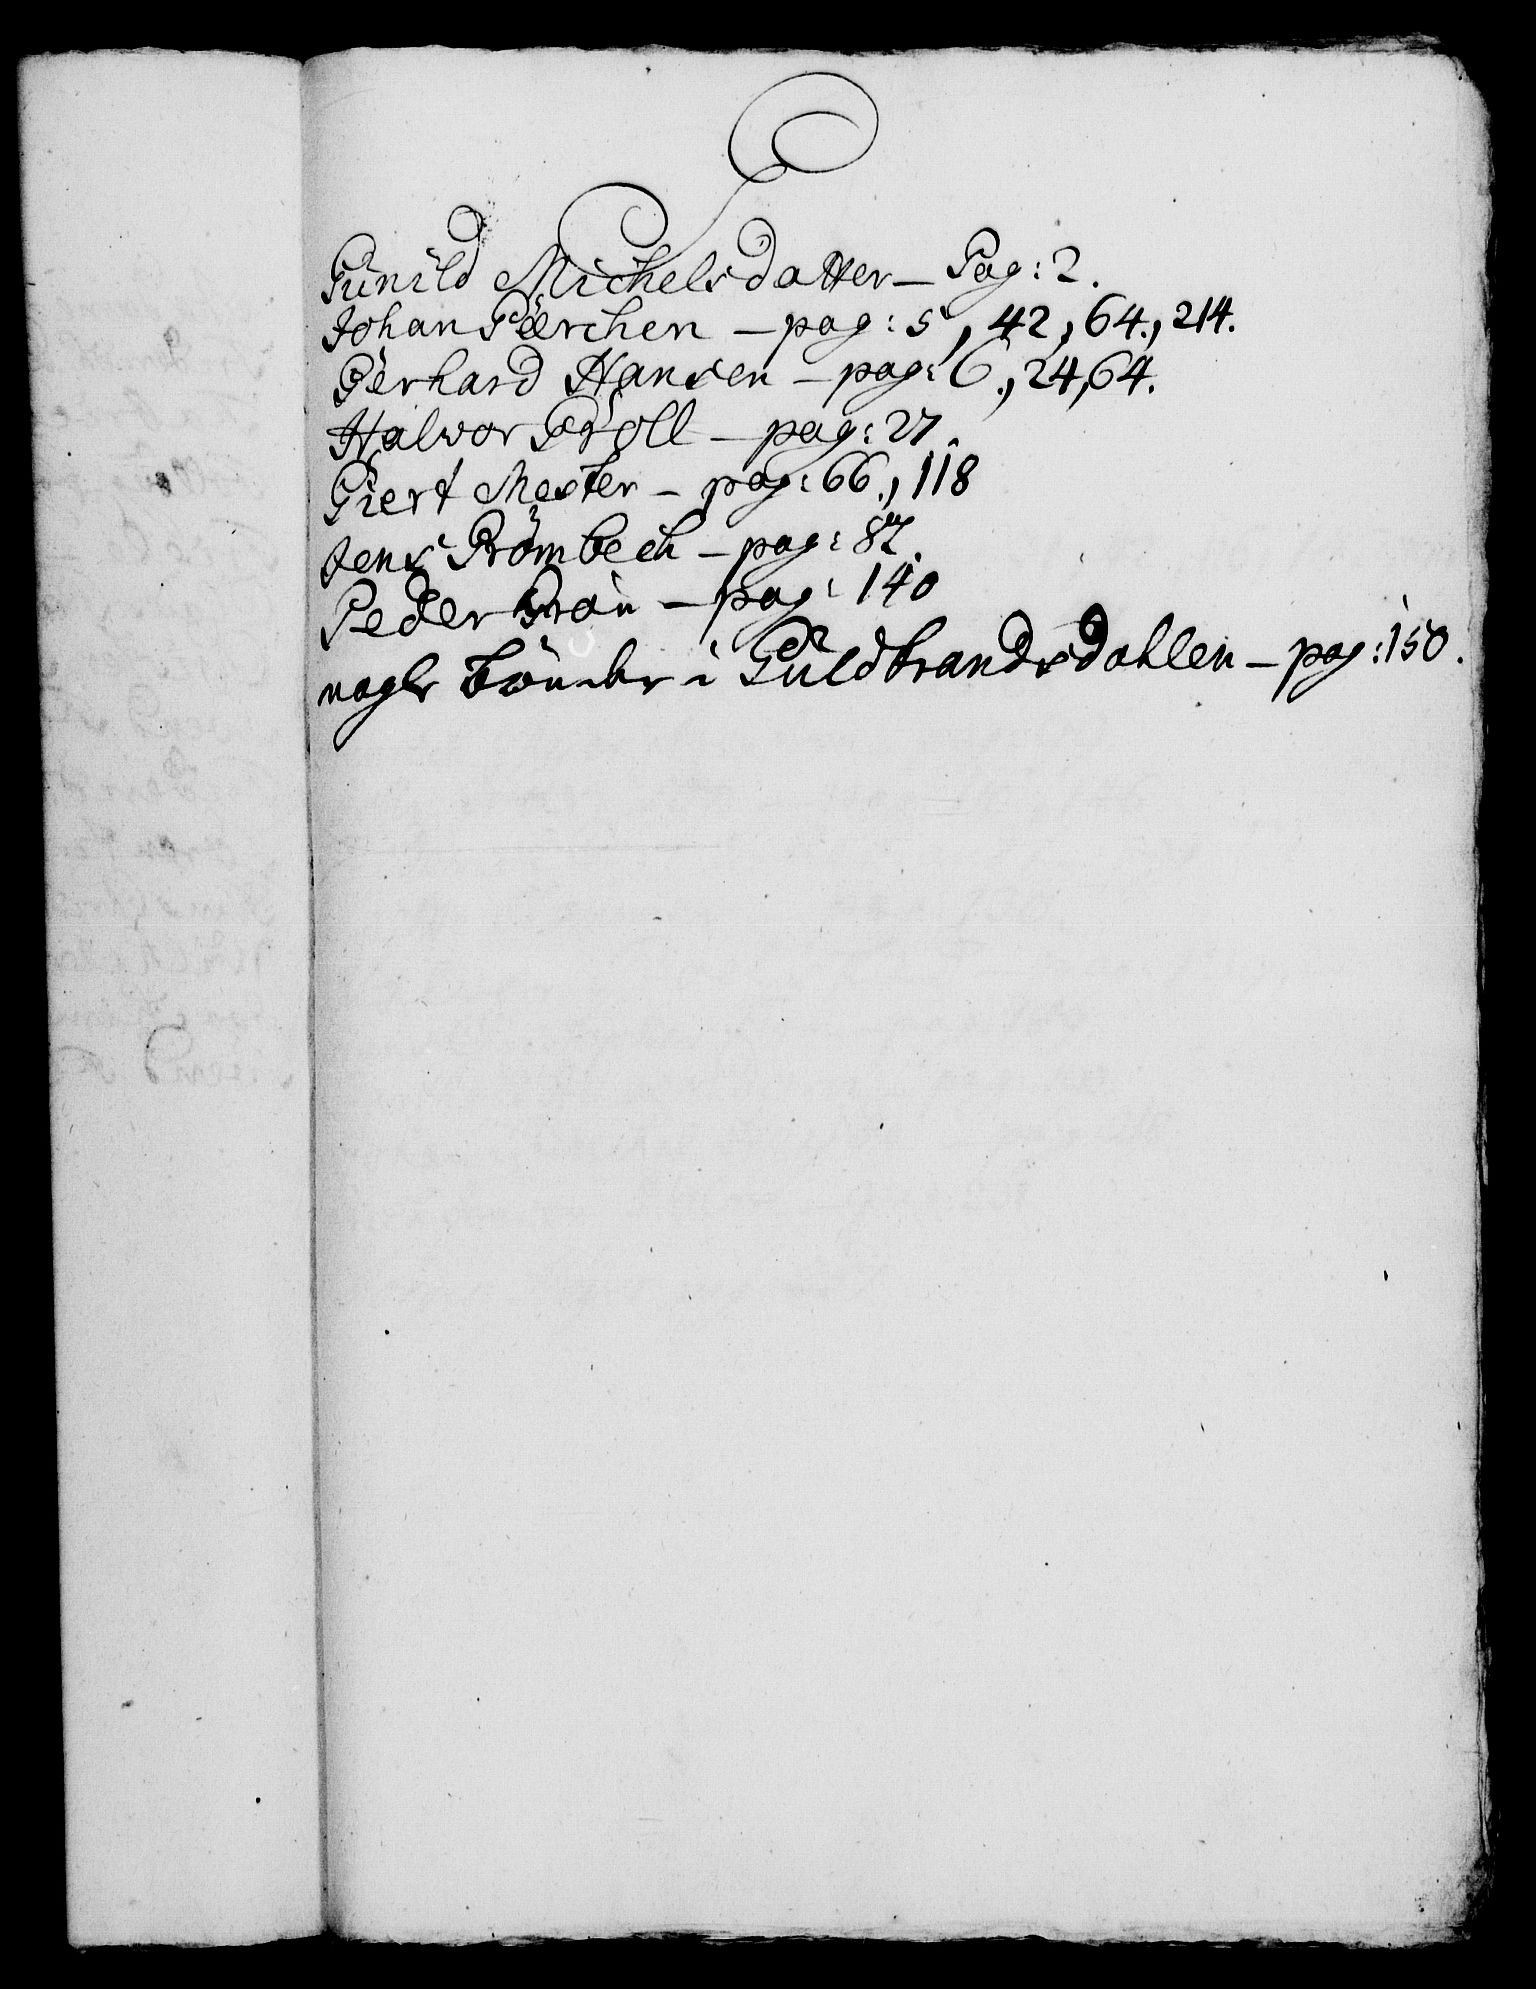 G
Gunild Michelsdatter – Pag: 2.
Johan Gærchen – pag: 5, 42, 64., 214.
Gerhard Hansen – pag: 6., 24, 64.
Halvor Gröll – pag: 27.
Giert Mester – pag: 66., 118
Jens Grömbech – pag: 87.
Peder Grön – pag: 140
nogle bönder i Guldbrandsdahlen – pag: 150.